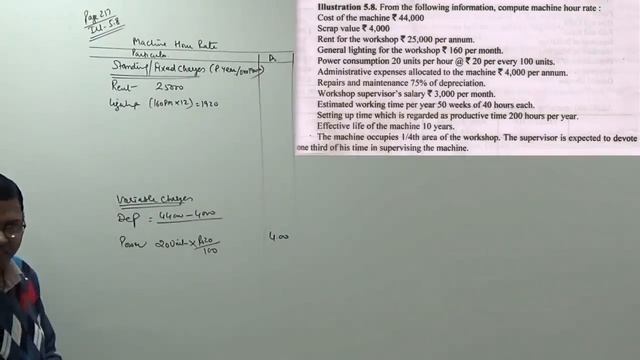 Page 217
Ill - 5.8
Machine Hour Rate
Particulars Rs
Standing/Fixed Charges (P year/
Rent - 25000
lighting (160PM x 12) = 1920
Variable charges
Dep = 4400 - 4000
Power 20 Unit x Rs20 4.00
100
Illustration 5.8. From the following information, compute machine hour rate :
Cost of the machine ₹ 44,000
Scrap value ₹ 4,000
Rent for the workshop ₹ 25,000 per annum.
General lighting for the workshop ₹ 160 per month.
Power consumption 20 units per hour @ ₹ 20 per every 100 units.
Administrative expenses allocated to the machine ₹ 4,000 per annum.
Repairs and maintenance 75% of depreciation.
Workshop supervisor's salary ₹ 3,000 per month.
Estimated working time per year 50 weeks of 40 hours each.
Setting up time which is regarded as productive time 200 hours per year.
Effective life of the machine 10 years.
The machine occupies 1/4th area of the workshop. The supervisor is expected to devote
one third of his time in supervising the machine.